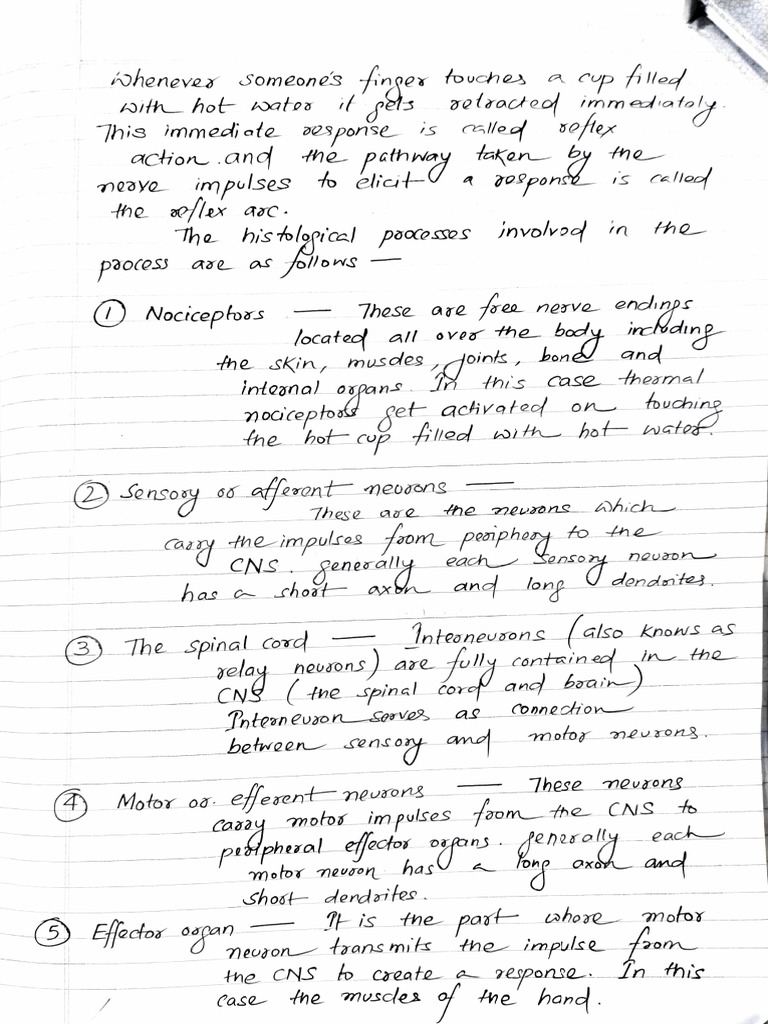 Whenever someone's finger touches a cup filled
with hot water it gets retracted immediately.
This immediate response is called reflex
action. and the pathway taken by the
nerve impulses to elicit a response is called
the reflex arc.
The histological processes involved in the
process are as follows —
① Nociceptors — These are free nerve endings
located all over the body including
the skin, muscles, joints, bone and
internal organs. In this case thermal
nociceptors get activated on touching
the hot cup filled with hot water.
② Sensory or afferent neurons —
These are the neurons which
carry the impulses from periphery to the
CNS. generally each sensory neuron
has a short axon and long dendrites.
③ The spinal cord — Interneurons (also knows as
relay neurons) are fully contained in the
CNS (the spinal cord and brain)
Interneuron serves as connection
between sensory and motor neurons.
④ Motor or. efferent neurons — These neurons
carry motor impulses from the CNS to
peripheral effector organs. generally each
motor neuron has a long axon and
short dendrites.
⑤ Effector organ — It is the part where motor
neuron transmits the impulse from
the CNS to create a response. In this
case the muscles of the hand.